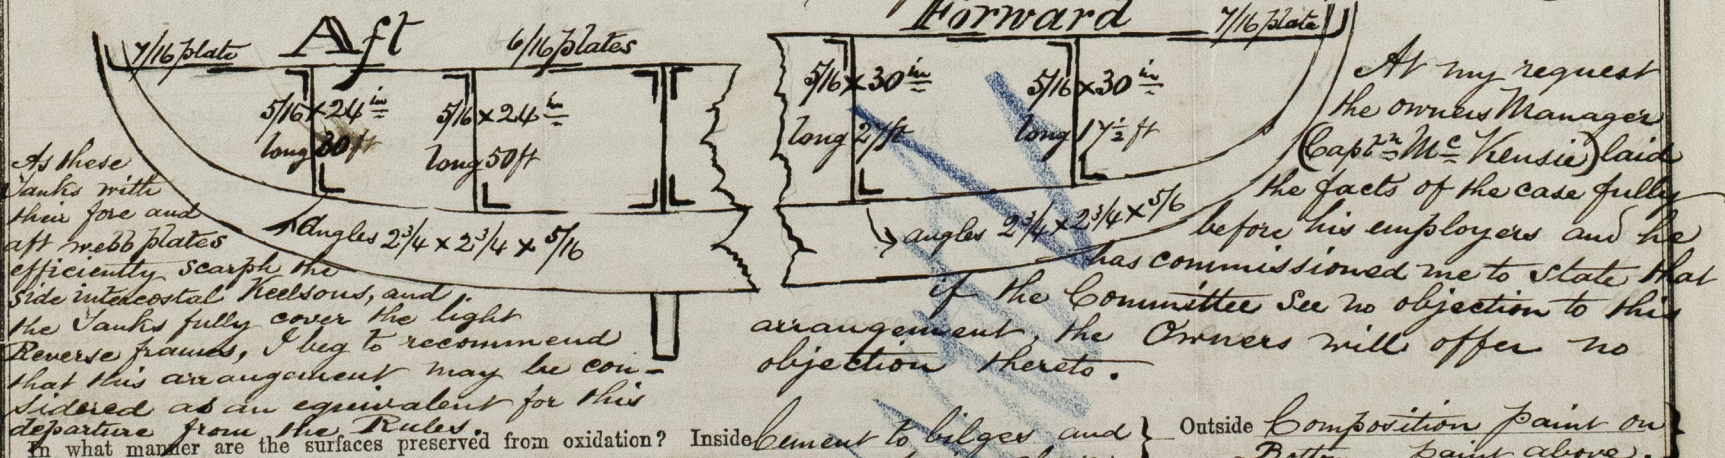 Aft
Forward
7/16 plate
6/16 plates
7/16 plate
5/16 x 24 in
long 30 ft
5/16 x 24 in
long 50 ft
5/16 x 30 in
long 27 ft
5/16 x 30 in
long 17½ ft
Angles 2¾ x 2¾ x 5/16
angles 2¾ x 2¾ x 5/16
As these
Tanks with
their fore and
aft webb plates
efficiently scarph the
side intercostal Keelsons, and
the Tanks fully cover the light
Reverse frames, I beg to recommend
that this arrangement may be con-
sidered as an equivalent for this
departure from the Rules.
At my request
the owners Manager
(Captn Mc Kensie) laid
the facts of the case fully
before his employers and he
has commissioned me to state that
if the Committee see no objection to this
arrangement, the Owners will offer no
objection thereto.
In what manner are the surfaces preserved from oxidation? Inside Cement to bilges and
Outside Composition paint on
paint above.